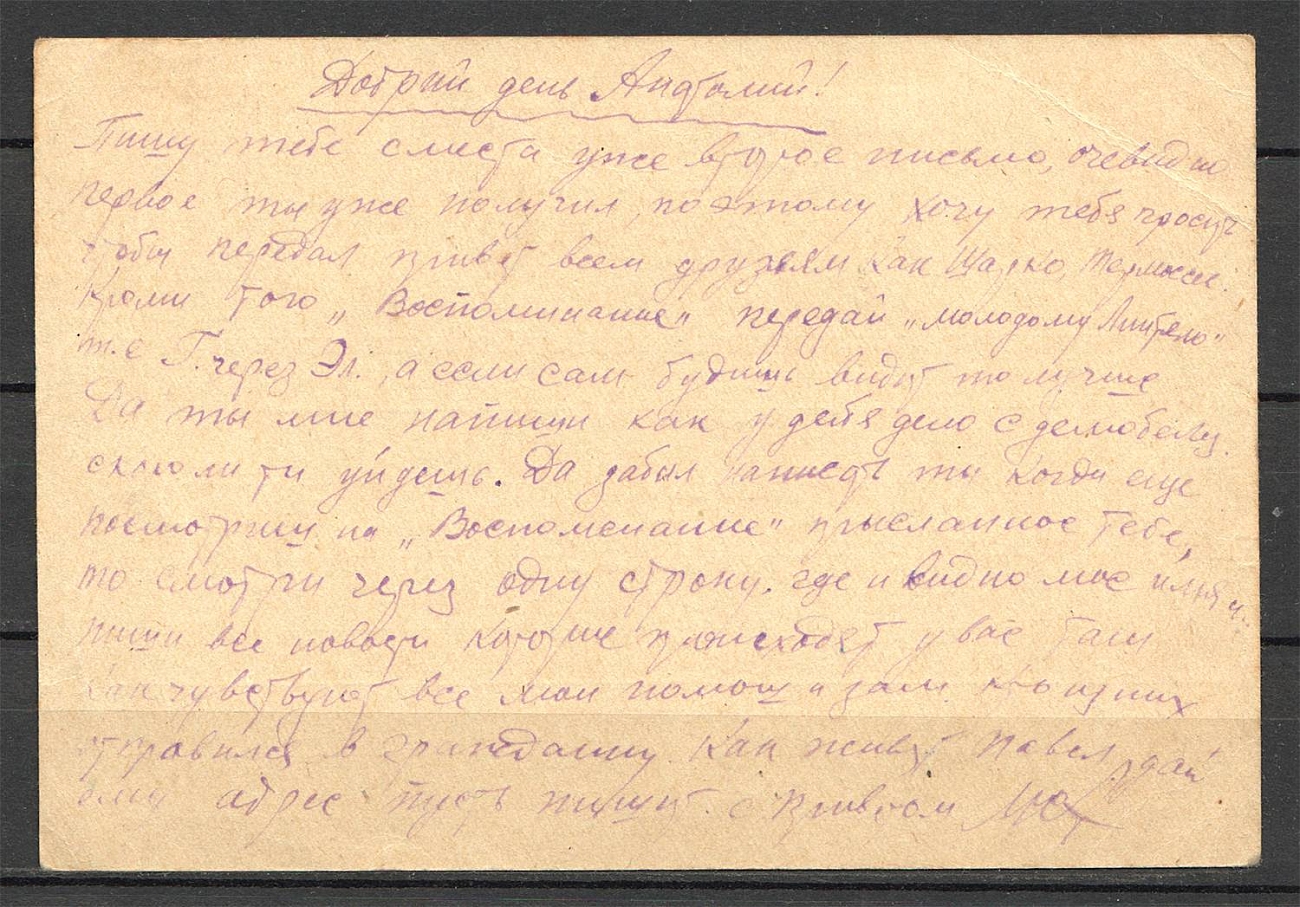 Добрий день Анатолий!
Пишу тебе с места уже второе письмо, очевидно
первое ты уже получил, поэтому хочу тебя просить
чтобы передал привет всем друзьям как
Кроми того „Воспоминание" передай „молодому
т.е Г. через Эл., а если сам будишь видет то лучше
Да ты мне напиши как у тебя дело с демобелиз.
скоро ли ти уйдешь. Да забыл написать ты когда еще
посмотриш на „Воспоменание" присланное тебе,
то смотри через одну строку. где и видно мое имя и..
пиши все новости которые происходят у вас там
как чувствуют все мои помощ и зам. кто из них
отправился в гражданку. Как живет Павел, дай
ему адрес пусть пишет. с приветом